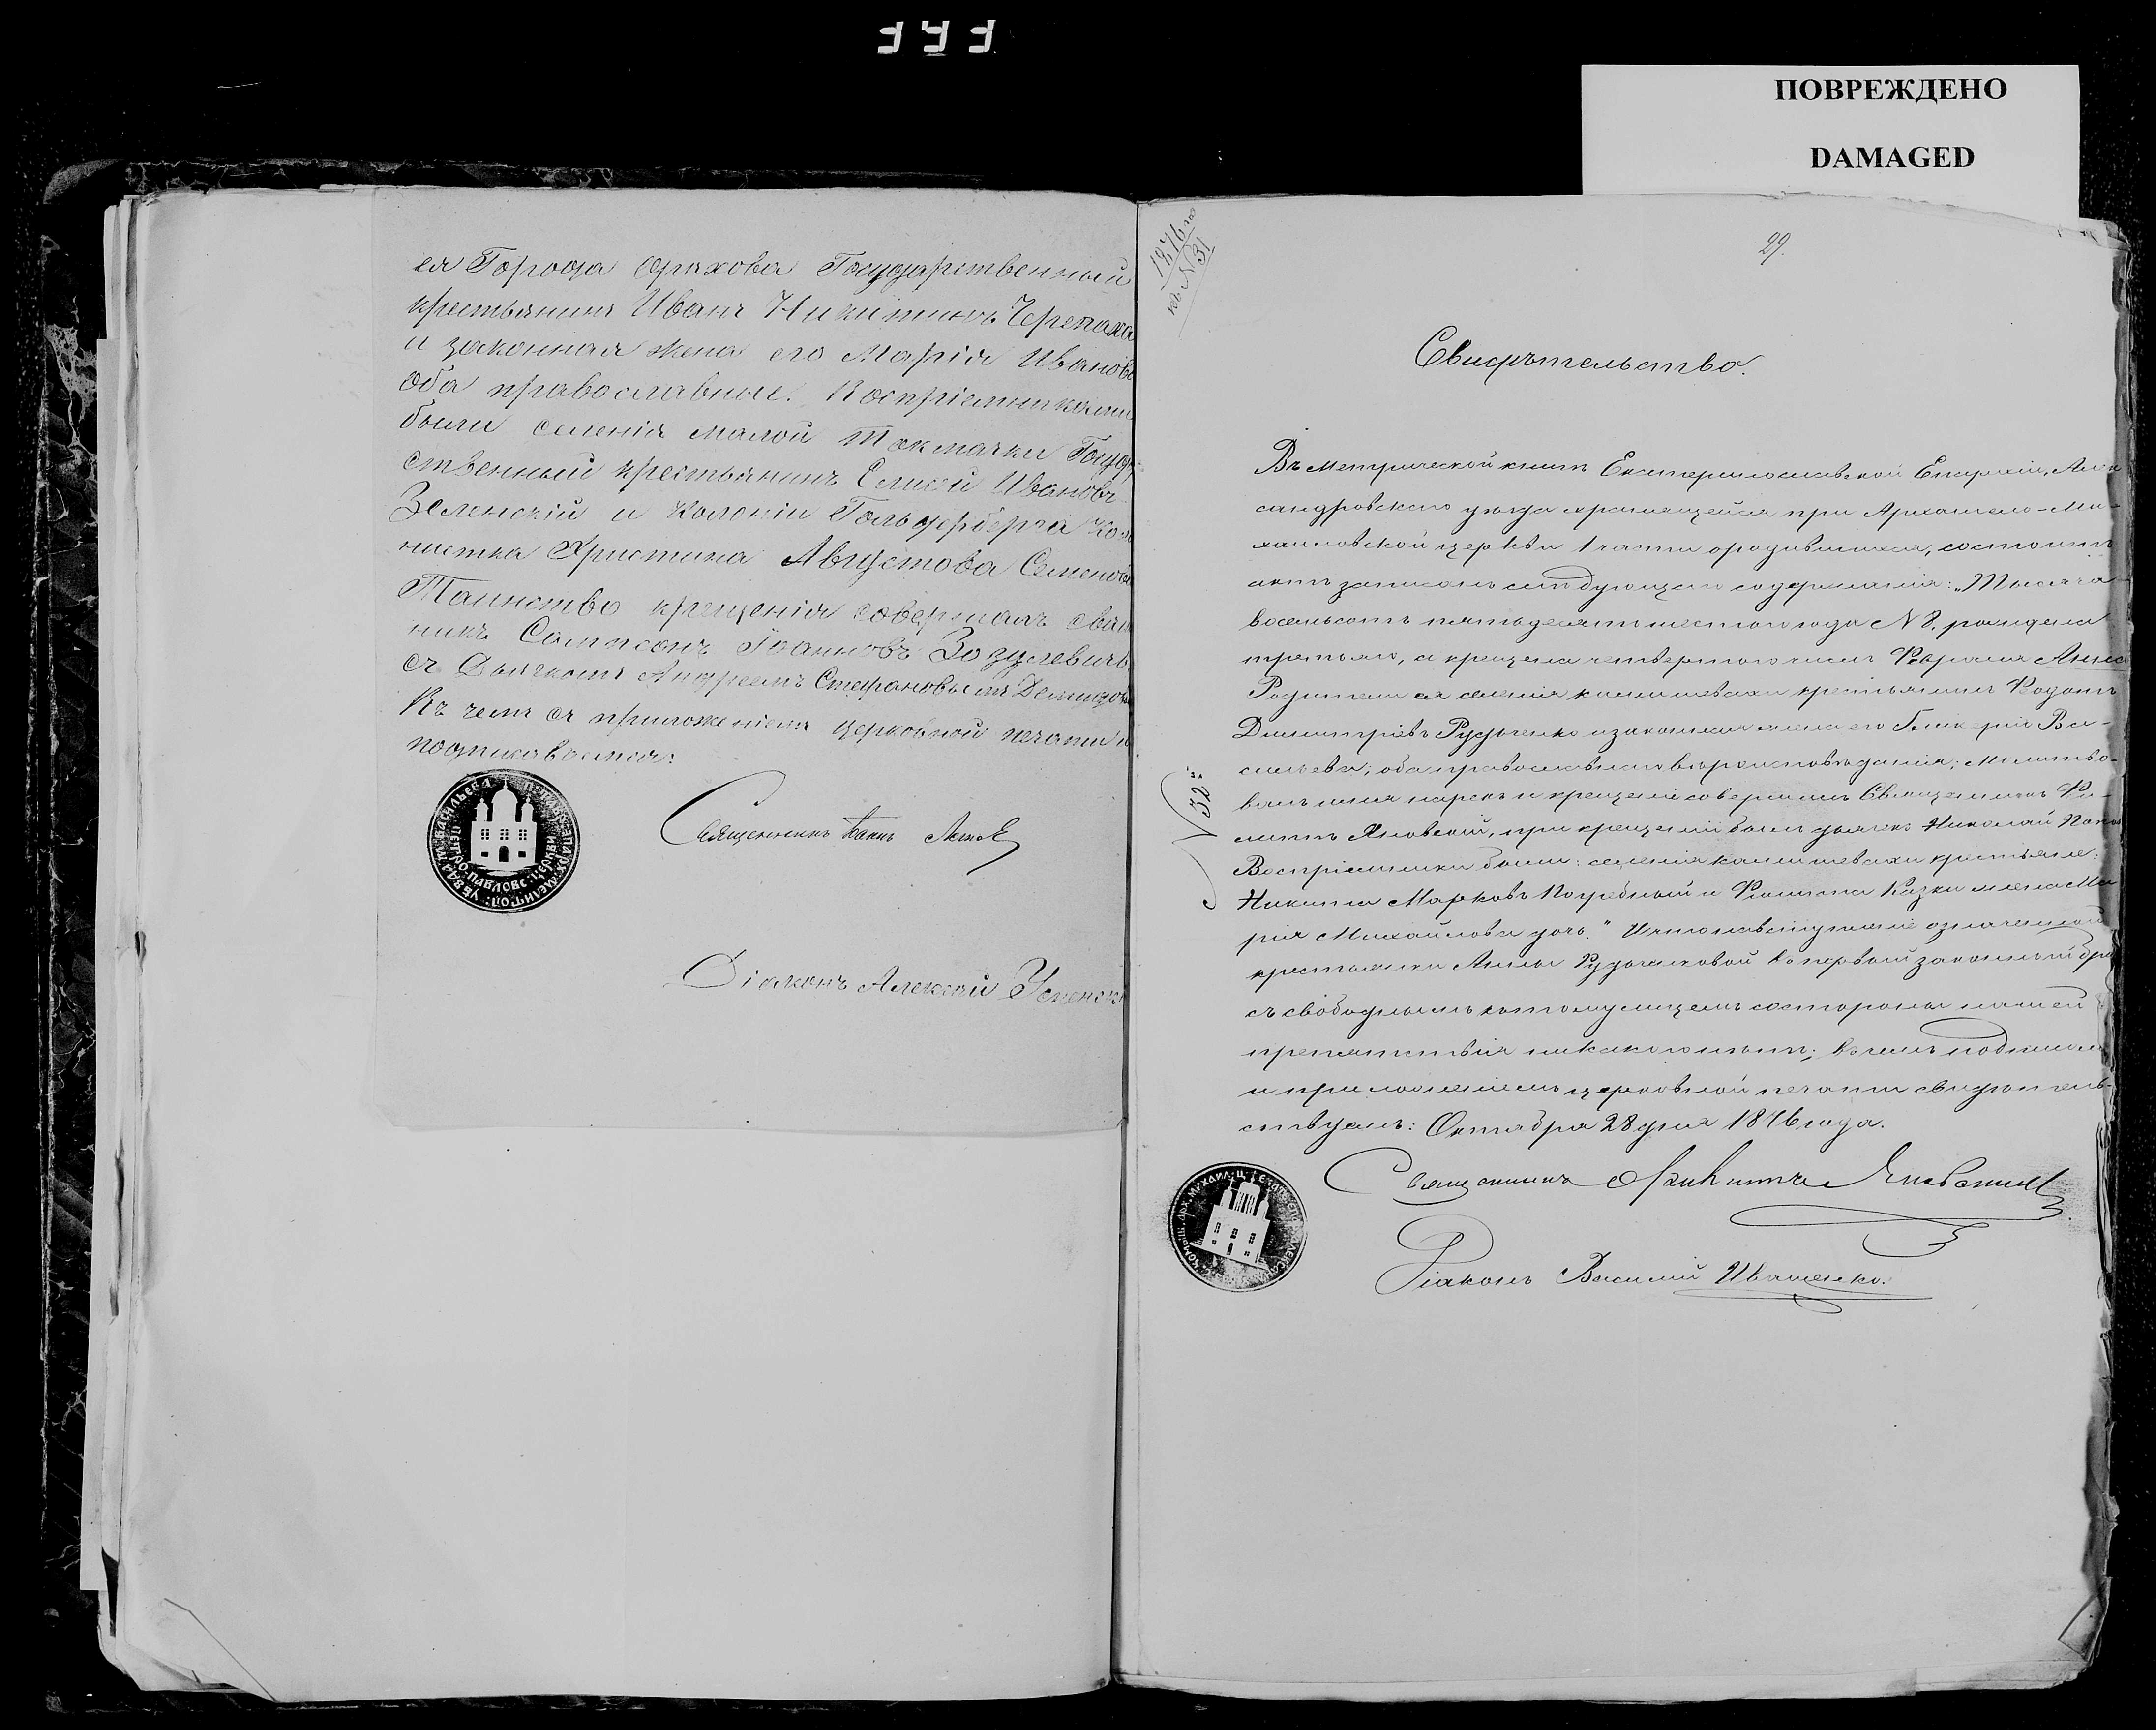 ПОВРЕЖДЕНО
DAMAGED
ея Города Орѣхова Государственный
крестьянинъ Иванъ Никитинъ Черепаха
и законная жена его Марія Иванова
оба православные. Воспріемниками
были селенія малой Токмачки Госуда
ственный крестьянинъ Ивановъ
Зеленскій и Колоніи Гольдферберга Коло
нистка Христина Августова Семенова
Таинство крещенія совершалъ свящ
никъ Сампсонъ Іоанновъ Зозулевичъ
съ Дьячкомъ Андреемъ Стефановымъ Демидов
Къ чемъ съ приложеніемъ церковной печати и
подписываемся:
Священникъ Іоаннъ
Діаконъ Алексѣй Успенск
1876 го
къ № 31
29.
Свидѣтельство.
Въ Метрической книгѣ Екатеринославской Епархіи, Алек
сандровскаго уѣзда хранящейся при Архангело-Ми-
хаиловской церкви 1 части о родившихся, состоитъ
актъ записанъ слѣдующаго содержанія: „Тысяча
восемьсотъ пятьдесятъ шестого года № 8. рождена
третьяго, а крещена четвертаго числъ Февраля Анна
Родители ея селенія камышевахи крестьянинъ
Димитріевъ Рудченко и законная жена его Гликерія Ва-
сильева; оба православнаго вѣроисповѣданія; Молитво-
валъ имя нарекъ и крещеніе совершилъ Священникъ
Яновскій, при крещеніи былъ дьячекъ Николай Попов
Воспріемники были: селенія камышевахи крестьяне:
Никита Марковъ Погребный и Казки жена Ма
рія Михайлова дочь." И что на вступленіе означенной
крестьянки Анны Рудченковой въ первый законный бра
съ свободнымъ къ тому лицемъ со стороны нашей
препятствія никакого нѣтъ; въ чемъ подписом
и приложеніемъ церковной печати свидѣтель-
ствуемъ: Октября 28 дня 1876 года.
№ 32:
Священникъ Яновскій
Діаконъ Василій Иващенко.